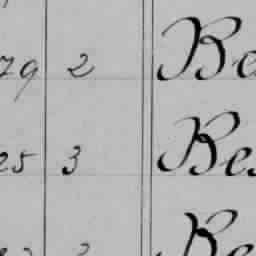 79 2 Be
25 3 Bes